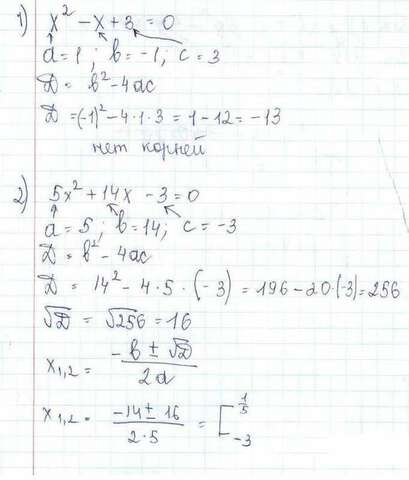 1) x² - x + 3 = 0
a = 1 ; b = -1 ; c = 3
D = b² - 4ac
D = (-1)² - 4·1·3 = 1 - 12 = -13
нет корней
2) 5x² + 14x - 3 = 0
a = 5 ; b = 14 ; c = -3
D = b² - 4ac
D = 14² - 4·5·(-3) = 196 - 20·(-3) = 256
√D = √256 = 16
x₁,₂ = (-b ± √D)/(2a)
x₁,₂ = (-14 ± 16)/(2·5) = [ 1/5
-3